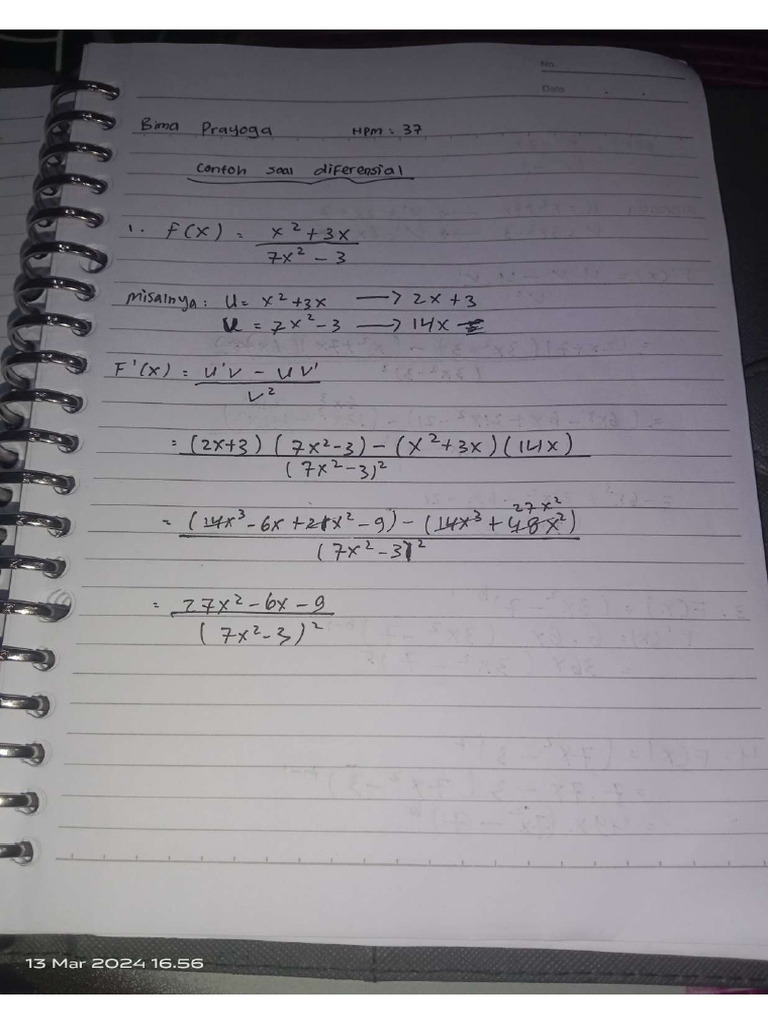 No.
Date
Bima Prayoga NPM : 37
Contoh soal diferensial
1. F(x) = x² + 3x / 7x² - 3
Misalnya : U = x² + 3x → 2x + 3
U = 7x² - 3 → 14x
F'(x) = u'v - uv' / v²
= (2x+3) (7x²-3) - (x²+3x) (14x) / (7x²-3)²
27x²
= (14x³ - 6x + 21x² - 9) - (14x³ + 48x²) / (7x²-3)²
= 27x² - 6x - 9 / (7x²-3)²
13 Mar 2024 16.56